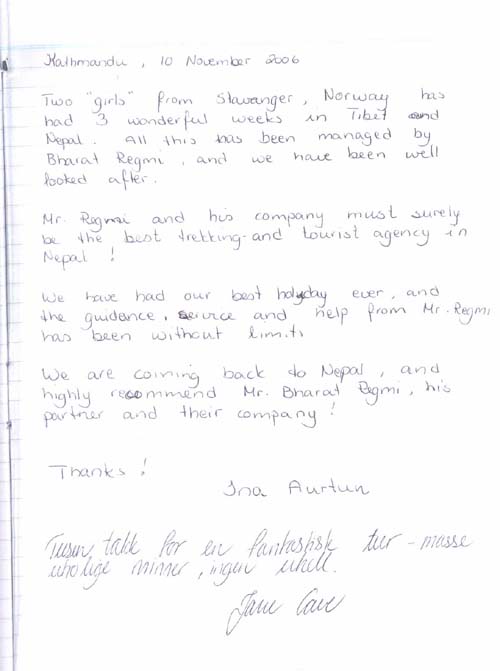 Kathmandu, 10 November 2006
Two "girls" from Stavanger, Norway has
had 3 wonderful weeks in Tibet and
Nepal. All this has been managed by
Bharat Regmi, and we have been well
looked after.
Mr. Regmi and his company must surely
be the best trekking-and tourist agency in
Nepal!
We have had our best holyday ever, and
the guidance, service and help from Mr. Regmi
has been without limits
We are coming back to Nepal, and
highly recommend Mr. Bharat Regmi, his
partner and their company!
Thanks!
Ina Aurtun
Tusen takk for en fantastisk tur - masse
utrolige minner, ingen uhell.
Jane